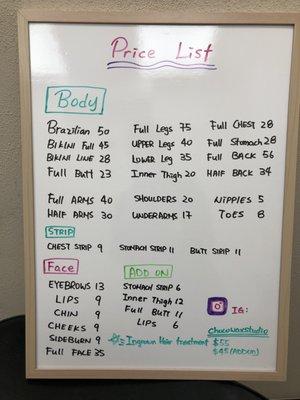 Price List
Body
Brazilian 50
BIKINI Full 45
BIKINI LINE 28
Full Butt 23
Full Legs 75
UPPER Legs 40
LOWER Leg 35
Inner Thigh 20
Full CHEST 28
Full Stomach 28
Full BACK 56
HALF BACK 34
Full ARMS 40
HALF ARMS 30
SHOULDERS 20
UNDERARMS 17
NIPPLES 5
TOES 8
STRIP
CHEST STRIP 9
STOMACH STRIP 11
BUTT STRIP 11
Face
EYEBROWS 13
LIPS 9
CHIN 9
CHEEKS 9
SIDEBURN 9
Full FACE 35
ADD ON
STOMACH STRIP 6
Inner Thigh 12
Full Butt 11
LIPS 6
IG:
Chocowaxstudio
Ingrown Hair treatment $55
$45 (ADDON)